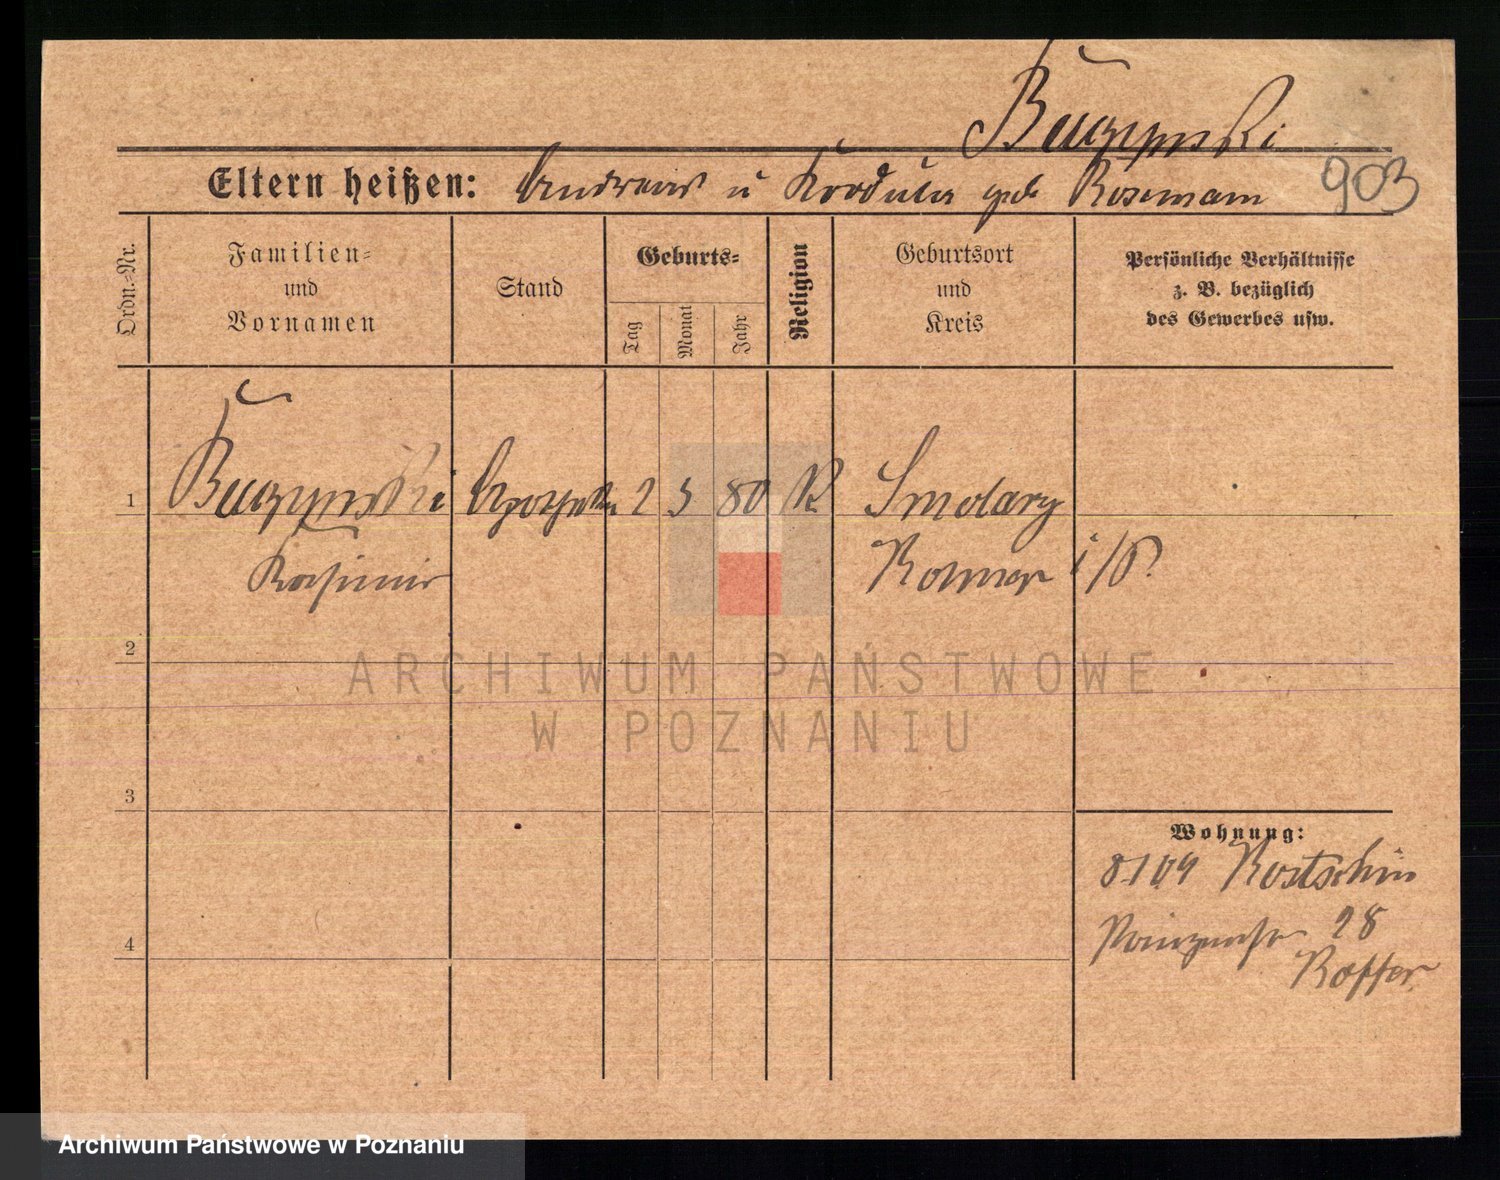 Buczynski
Eltern heißen: Andreas u Kordula geb Rosemann 903
Ordn.-Nr.
Familien-
und
Vornamen
Stand
Geburts-
Tag
Monat
Jahr
Religion
Geburtsort
und
Kreis
Persönliche Verhältnisse
z. B. bezüglich
des Gewerbes usw.
1 Buczynski Apotheker 2 3 80 K Smolary
Kasimir Kolmar i/P.
2
3
4
Wohnung:
Kostschin
Prinzenstr 28
ARCHIWUM PAŃSTWOWE
W POZNANIU
Archiwum Państwowe w Poznaniu